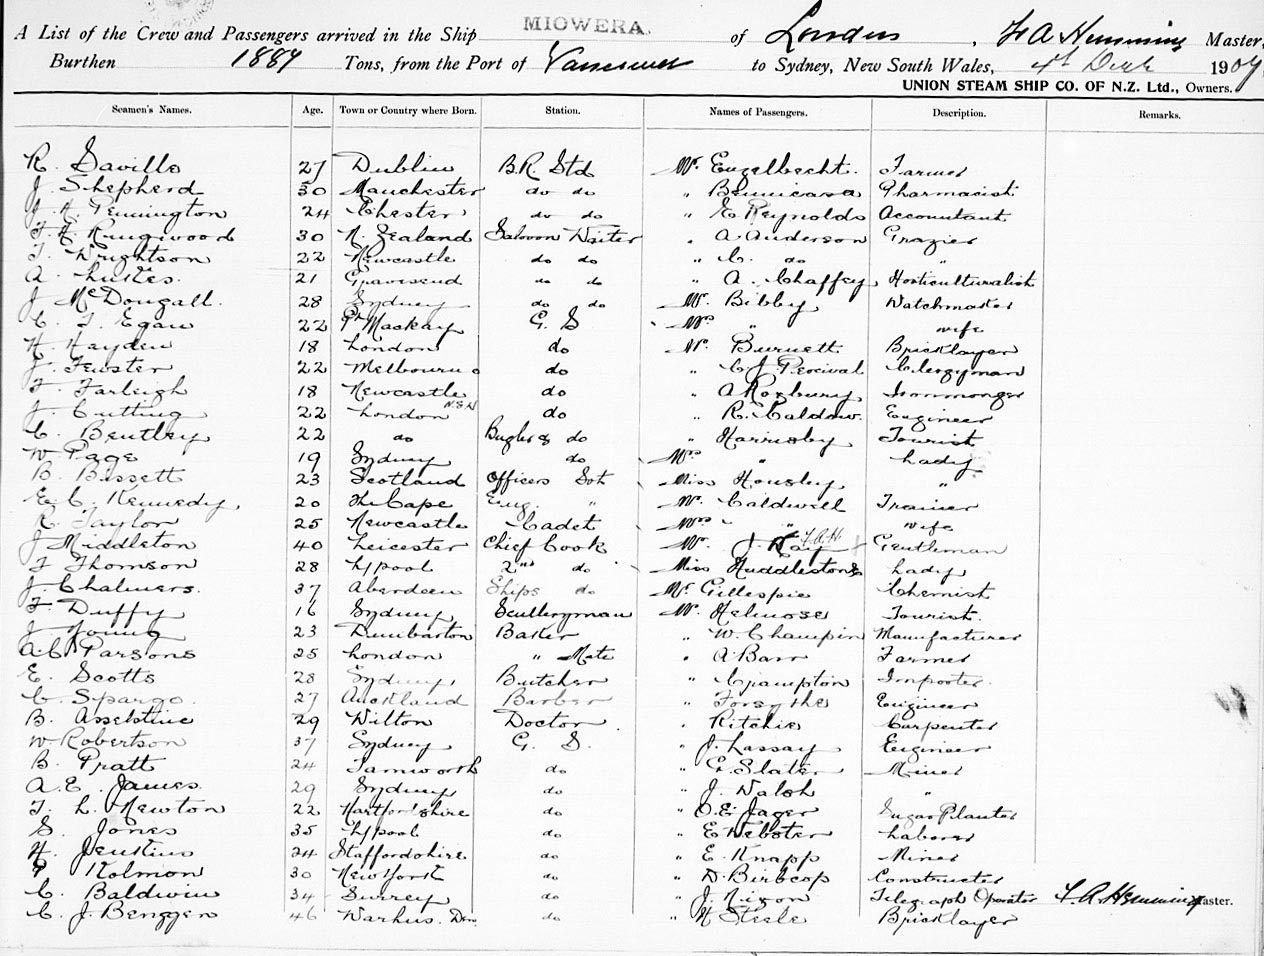 MIOWERA.
A List of the Crew and Passengers arrived in the Ship of London, F A Hemming Master,
Burthen 1889 Tons, from the Port of Vancouver to Sydney, New South Wales, 4th Decr 1907
UNION STEAM SHIP CO. OF N.Z. Ltd., Owners.
Seamen's Names. Age. Town or Country where Born. Station. Names of Passengers. Description. Remarks.
R. Saville 27 Dublin B.R. Std Mr. Engelbrecht. Farmer
J. Shepherd 30 Manchester do do " Pharmacist
Pennington 24 Chester do do " E Reynolds Accountant
Ringwood 30 N. Zealand Saloon Waiter " A. Anderson Grazier
T. Wrightson 22 Newcastle do do " C. do "
A. 21 Gravesend do do " A. Chaffey Horticulturalist
J. McDougall. 28 Sydney do do Mr. Bibby Watchmaker
C. J. Egan 22 Pt Mackay G. S Mrs " wife
H. Hayden 18 London do Mr. Burnett Bricklayer
J. Fewster 22 Melbourne do " C J Percival Clergyman
F. Farleigh 18 Newcastle N.S.W do " A Roxbury Ironmonger
J. Cutting 22 London do " R. Engineer
C. Bentley 22 do Bugler & do " Tourist
W Page 19 Sydney do Mrs " Lady
B. Bissett 23 Scotland Officers Miss Housley "
E. C. Kennedy 20 The Cape Eng. " Mr. Caldwell Trainer
R. Taylor 25 Newcastle Cadet Mrs " wife
J Middleton 40 Leicester Chief Cook Mr. J Kay F.A.H Gentleman
F Thomson 28 L/pool 2nd do Miss Huddlestone Lady
J. Chalmers. 37 Aberdeen Ships do Mr. Gillespie Chemist
F Duffy 16 Sydney Sculleryman Mr. Tourist.
J. Young 23 Dumbarton Baker " W. Champin Manufacturer
A.C. Parsons 25 London " Mate " A Barr Farmer
E. Scotts 28 Sydney Butcher " Crampton Importer.
C. Spargo 27 Auckland Barber " Forsythe Engineer
B. Asseltine 29 Wilton Doctor " Ritchie Carpenter
W Robertson 37 Sydney G. S. " J. Lassay Engineer
B. Pratt 24 Tamworth do " G. Slater Miner
A. E. James 29 Sydney do " J. Walsh "
T. L. Newton 22 Hartfordshire do " O. E. Jager Sugar Planter
S. Jones 35 L/pool do " E Webster Laborer
H. Jenkins 24 Staffordshire do " E. Knapp Miner
Kolmon 30 New York do " D. Constructer
C. Baldwin 34 Surrey do " J. Nixon Telegraph Operator F. A. Hemming Master.
C. J. Benggen 46 Warhus. Den do " H Steele Bricklayer